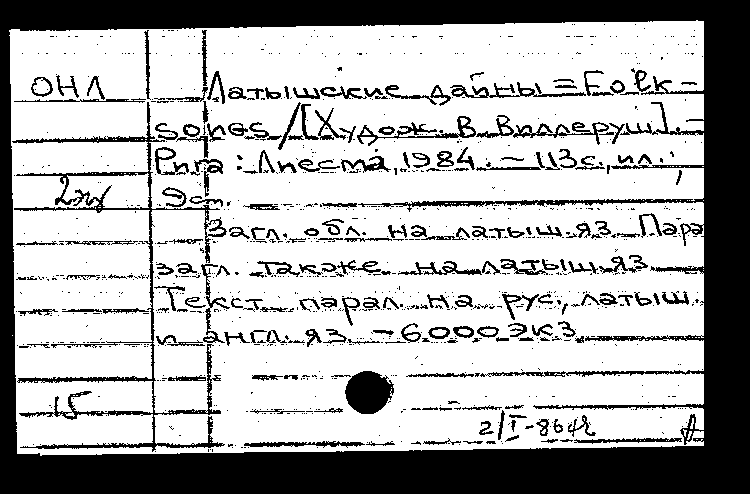 ОНЛ Латышские дайны = Folk-
songs / [Худож. В. Виллеруш]. -
Рига: Лиесма, 1984. - 113 с., ил.;
2 эк
Загл. обл. на латыш. яз. Пара
загл. также на латыш. яз
Текст парал. на рус., латыш.
и англ. яз. - 6000 экз
15
2/I-864г